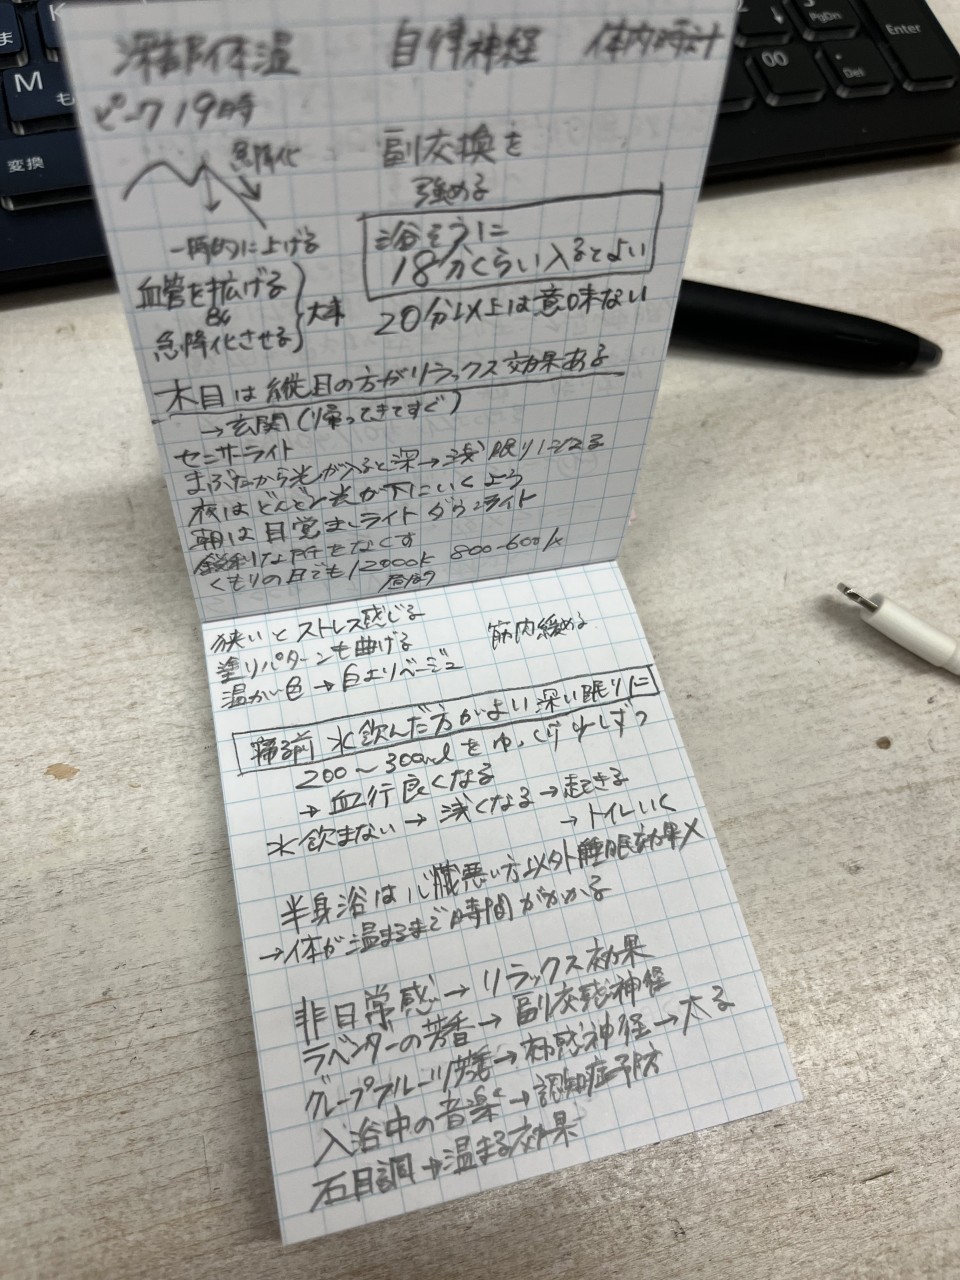 深部体温 自律神経 体内時計
ピーク19時
急降化
副交換を
強める
浴そうに
18分くらい入るとよい
20分以上は意味ない
一時的に上げる
血管を拡げる
&
急降化させる
大事
木目は縦目の方がリラックス効果ある
→玄関(帰ってきてすぐ)
センサーライト
まぶたから光が入ると深→浅い眠りになる
夜はどんどん光が下にいくよう
朝は目覚ましライト ダウンライト
鋭利な所をなくす
くもりの日でも12000K 800-600lx
狭いとストレス感じる
塗りパターンも曲げる 筋肉緩める
温かい色→白よりベージュ
寝る前 水飲んだ方がよい 深い眠りに
200〜300mlをゆっくり少しずつ
→血行良くなる
水飲まない→浅くなる→起きる
→トイレいく
半身浴は心臓悪い方以外睡眠効果×
→体が温まるまで時間がかかる
非日常感→リラックス効果
ラベンダーの芳香→副交感神経
グループフルーツ →神経→太る
入浴中の音楽→認知症予防
石目調→温まる効果
変換
M
も
ま
K
PgDn
00
Del
Enter